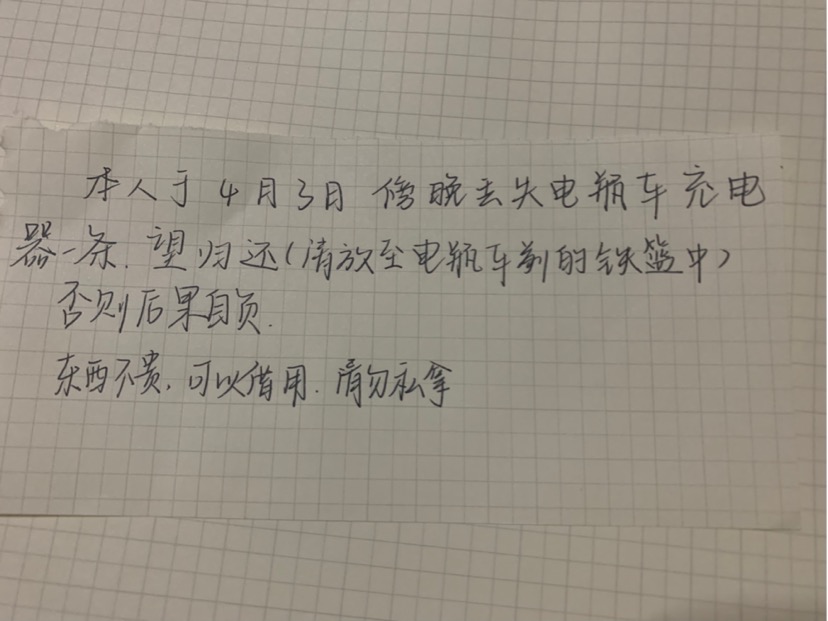 本人于4月3日傍晚丢失电瓶车充电
器一条.望归还(请放至电瓶车前的铁篮中)
否则后果自负.
东西不贵.可以借用.请勿私拿